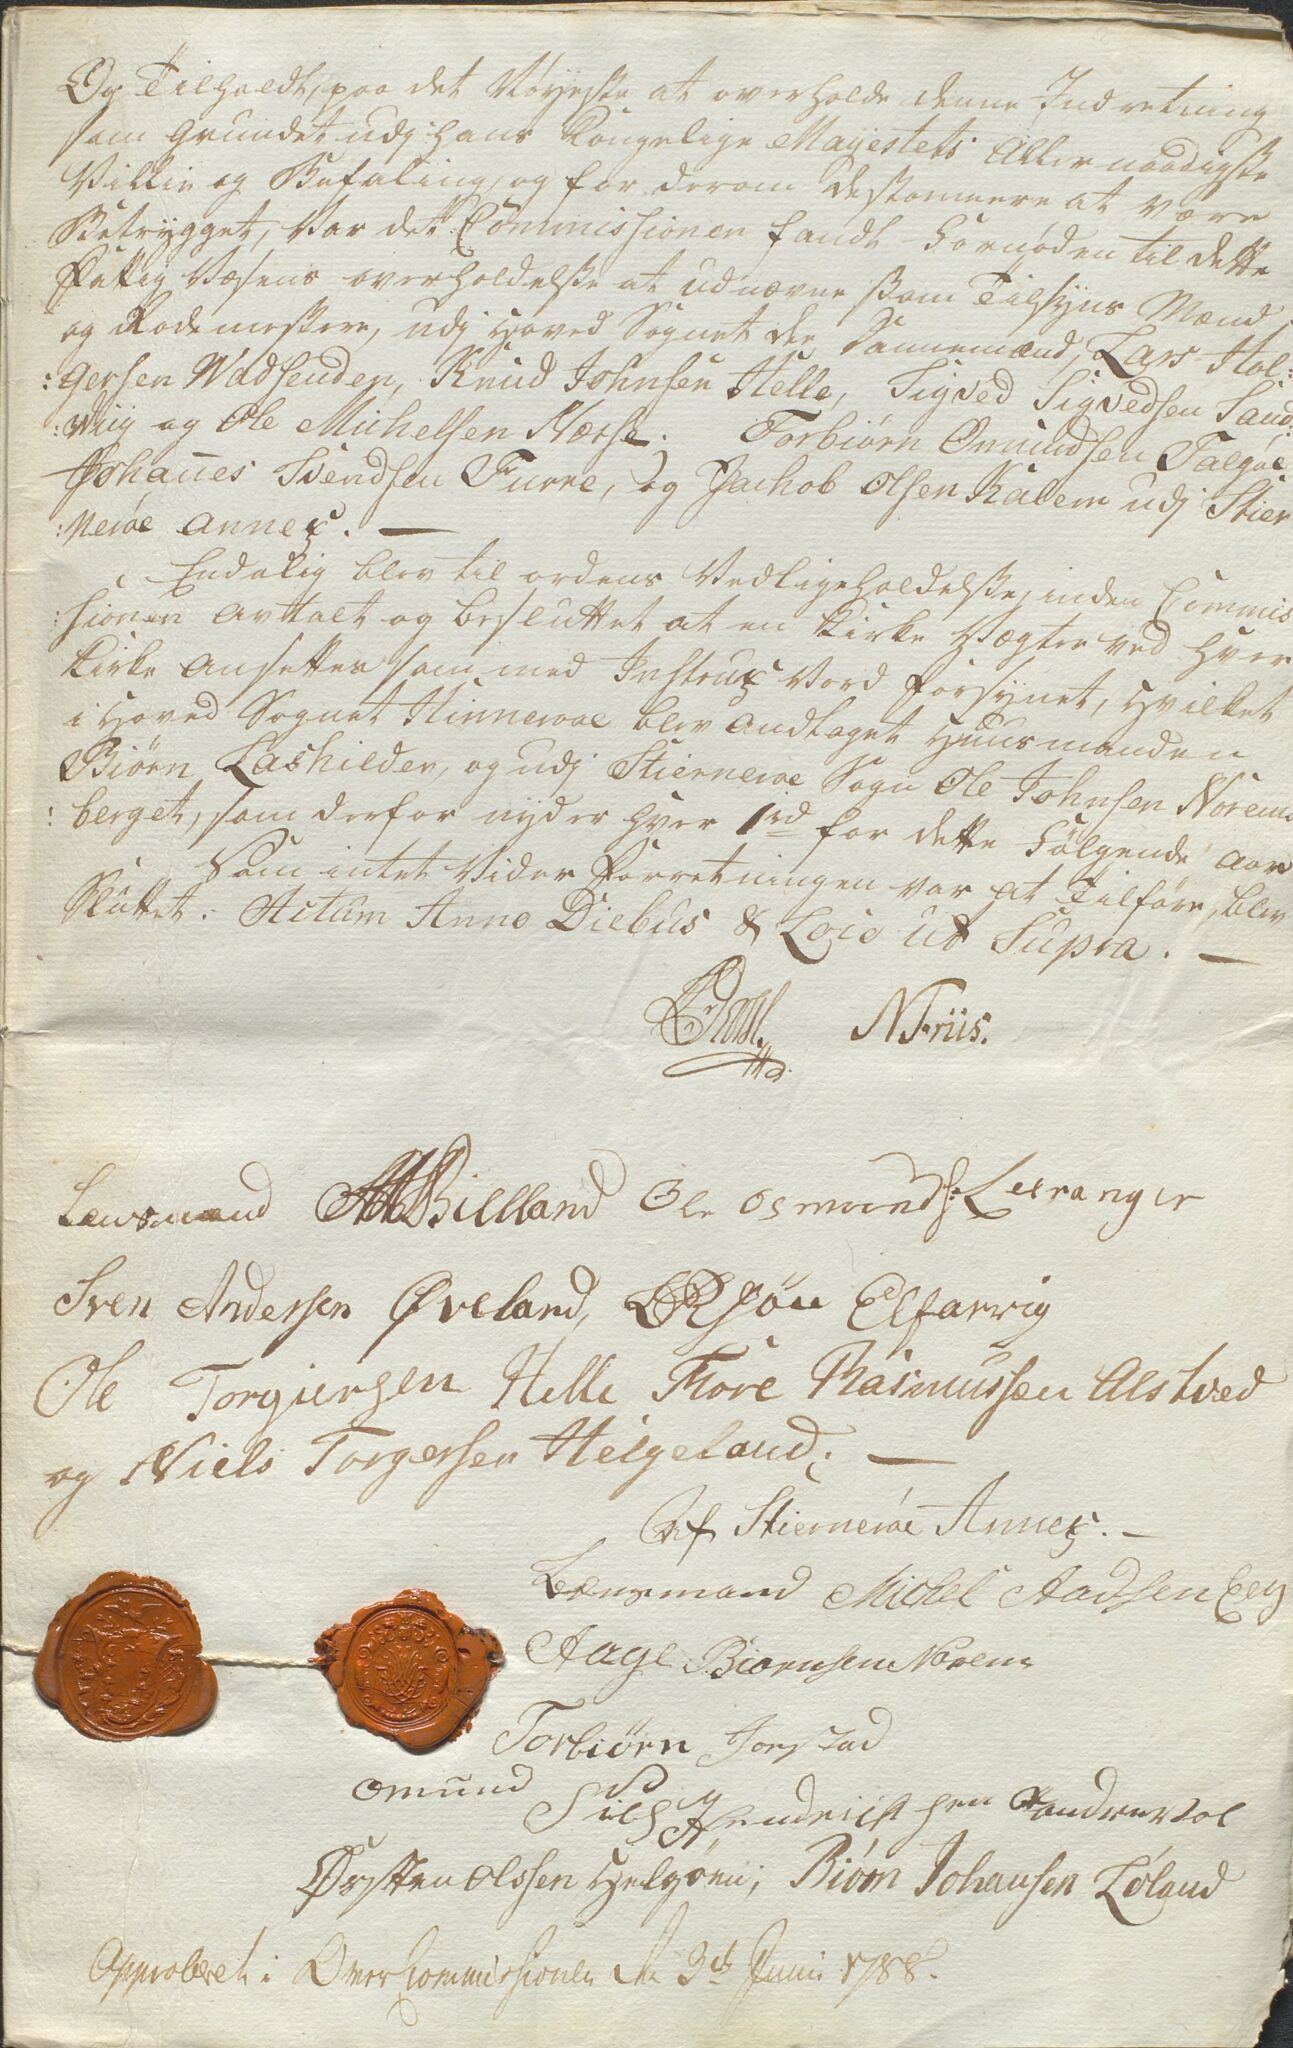 Og Tilholdt, paa det Nøyeste at overholde denne Indretning
som Grundet udj hans Kongelige Mayestets Allernaadigste
Villie og Befaling, og for derom desto meere at være
Betrygget, Var det Commissionen fandt Fornøden til dette
Fattig Væsens overholdelse at udnævne som Tilsyns Mænd
og Rodemestere, udj Hoved Sognet de Dannemænd, Lars Hol-
:gersen Wadsenden, Knud Johnsen Helle, Sigved Sigvedsen Sand-
:wiig og Ole Michelsen Næsse. Torbiørn Omundsen Talgøe
Johannes Svendsen Furre, og Jachob Olsen Kalem udj Stier
:nerøe Annex. —
Endelig blev til ordens Vedligeholdelse, inden Commis
:sionen avttalt og besluttet at en Kirke Vægter ved hver
Kirke Ansettes som med Instrux Vord forsynet, hvilket
i Hoved Sognet Hinnerøe blev Andtaget Huusmanden
Biørn Lashilder, og udj Stiernerøe Sogn Ole Johnsen Norem-
:berget, som derfor nyder hver 1 rd for dette Følgende aar
Som intet Vider Forretningen var at Tilføre, blev
Sluttet. Actum Anno Diebus & Loco ut Supra. —
N Friis.
Lensmand Billand Ole Osmunds: Leeranger
Sven Andersen Øveland, Elfarvig
Ole Torgiersen Helle Tore Rasmussen Alstved
og Niels Torgersen Helgeland. —
Af Stiernerøe Annex. —
Lænsmand Michel Aadsen Eeg
Aage Biørnsen Norem
Torbiørn Jorstad
Omund
Hendrichsen
Østen Olssen Helgøen, Biørn Johansen Løland
Approberet i Over Commissionen den 3de Junii 1788.